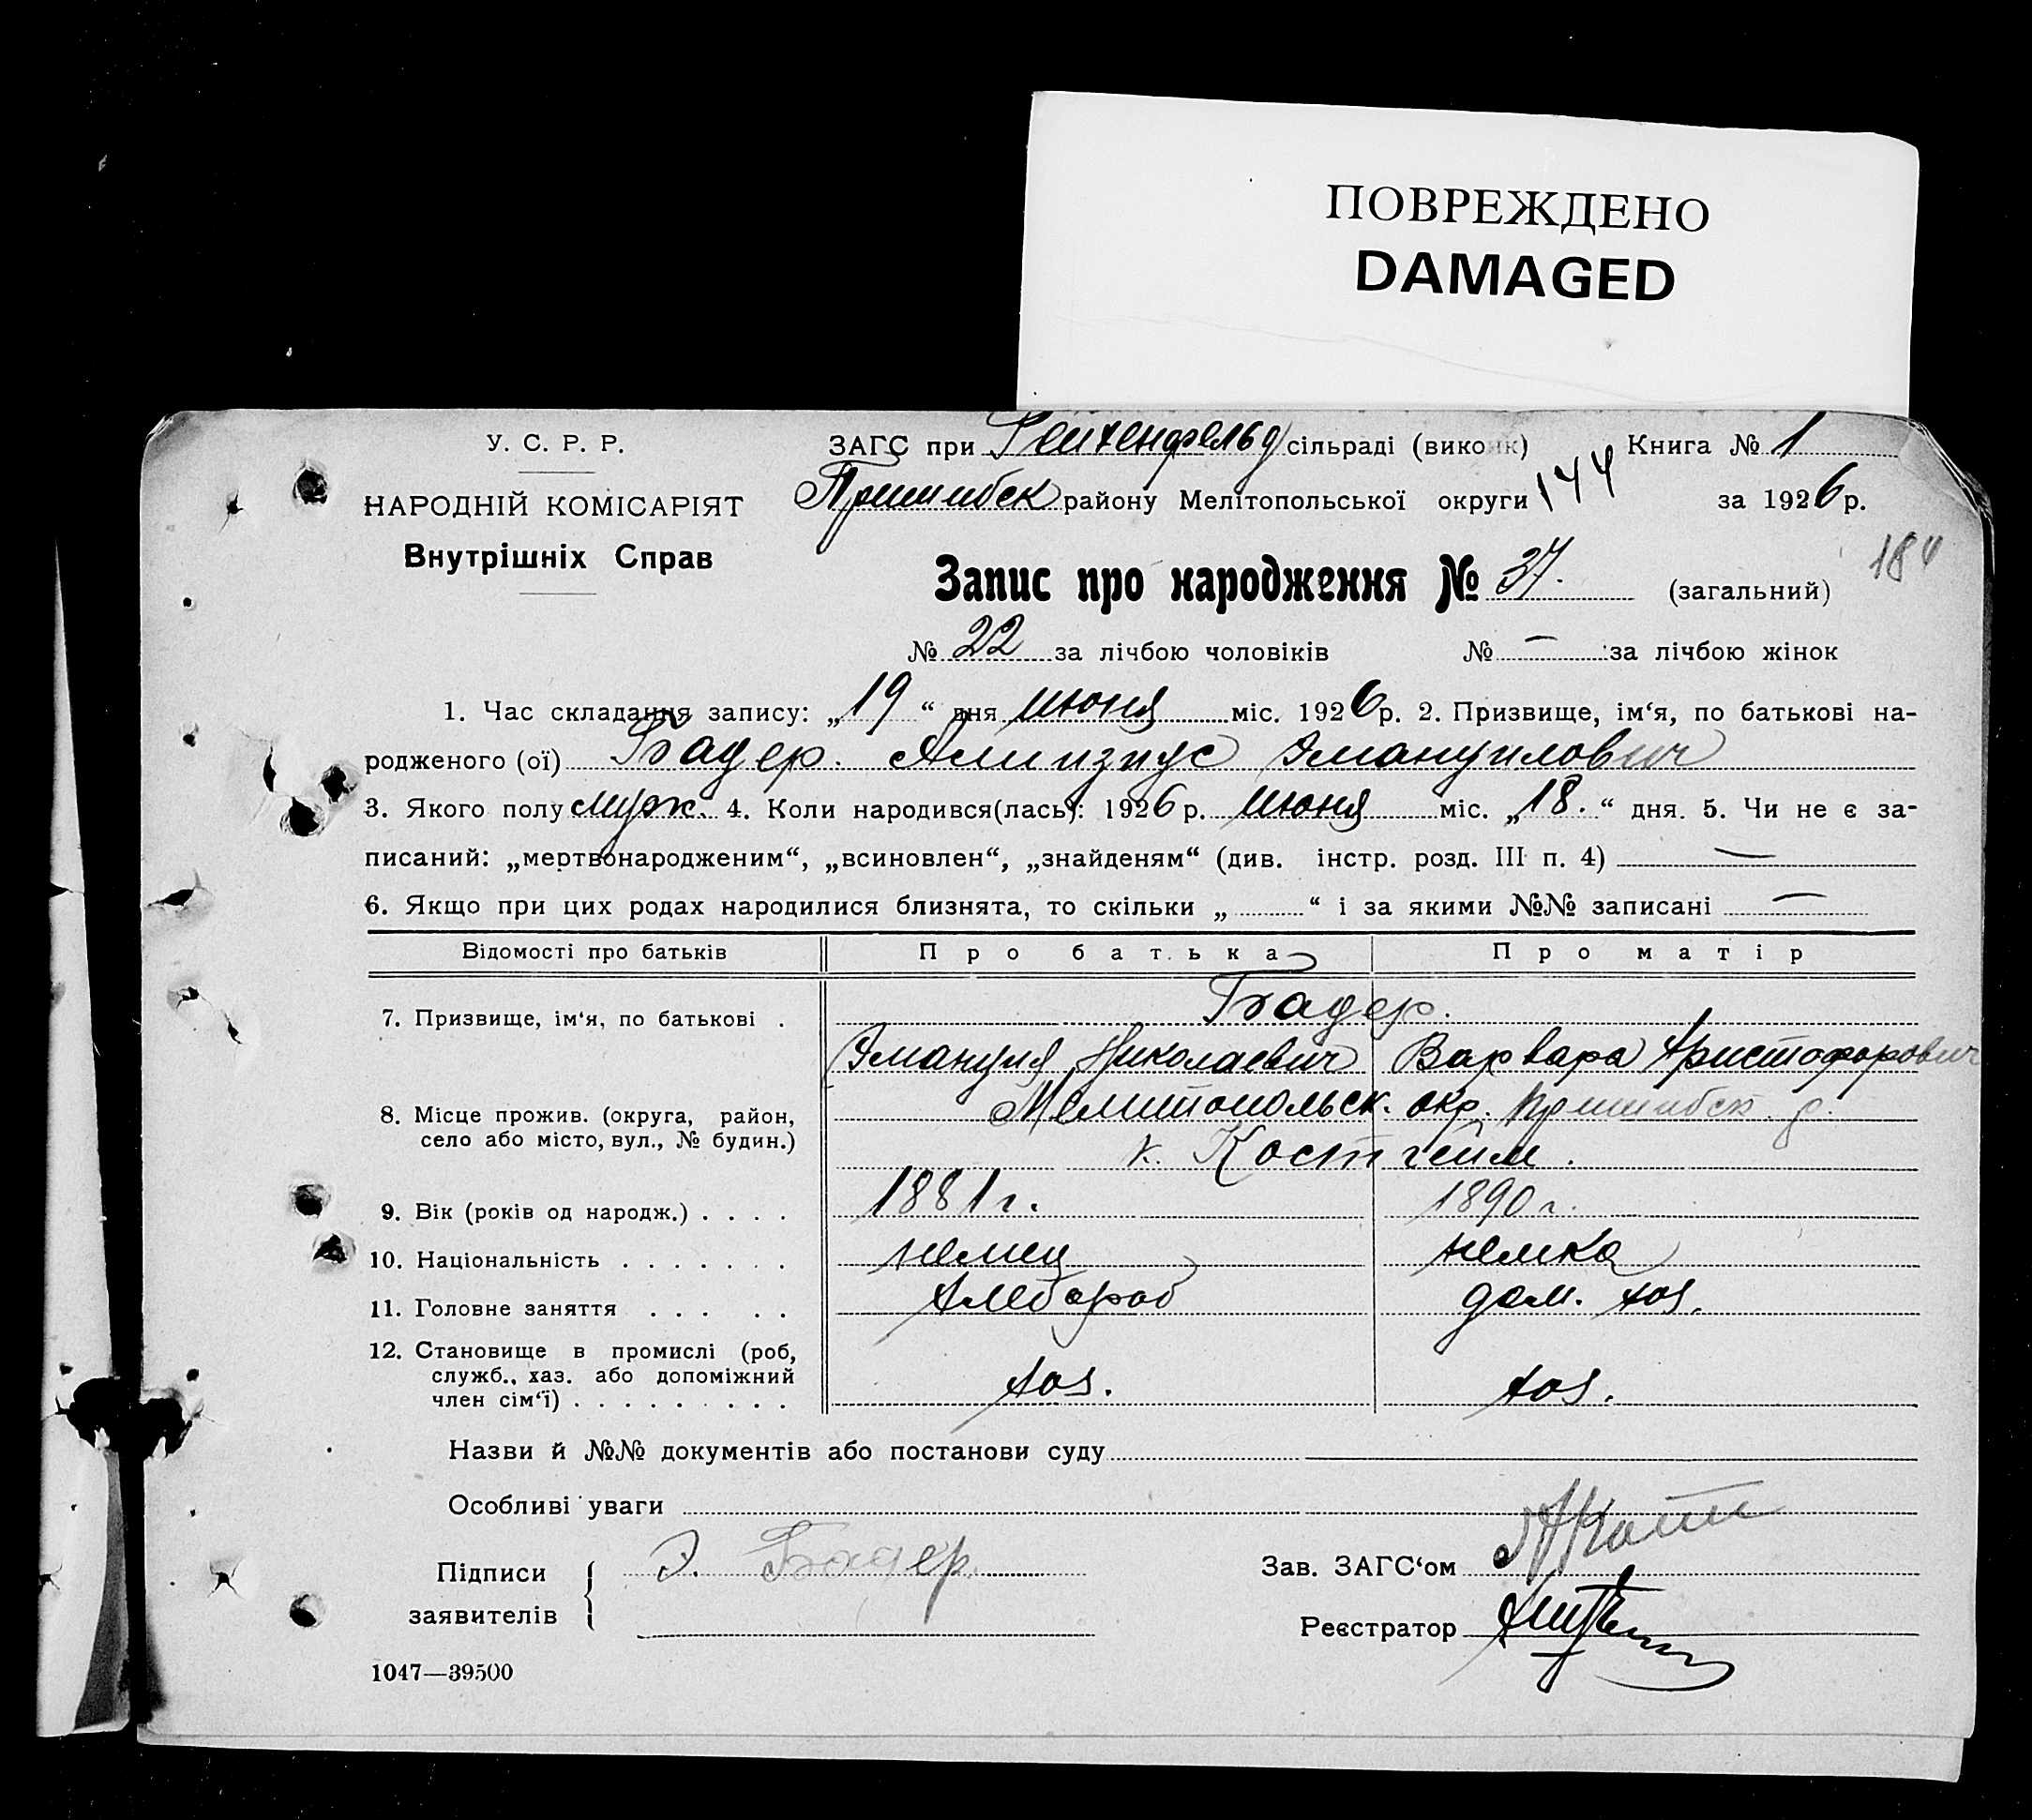 ПОВРЕЖДЕНО
DAMAGED
У. С. Р. Р.
НАРОДНІЙ КОМІСАРІЯТ
Внутрішніх Справ
ЗАГС при Рейхенфельд сільраді (виконк) Книга № 1
Пришибск району Мелітопольської округи 144 за 1926 р.
184
Запис про народження № 37. (загальний)
№ 22 за лічбою чоловіків № — за лічбою жінок
1. Час складання запису: „19“ дня июня міс. 1926 р. 2. Призвище, ім‘я, по батькові на-
родженого (ої) Бадер. Алицзиус Эмануилович
3. Якого полу муж. 4. Коли народився(лась): 1926 р. июня міс. „18.“ дня. 5. Чи не є за-
писаний: „мертвонародженим“, „всиновлен“, „знайденям“ (див. інстр. розд. III п. 4) —
6. Якщо при цих родах народилися близнята, то скільки „ “ і за якими №№ записані —
Відомості про батьків Про батька Про матір
7. Призвище, ім‘я, по батькові . Бадер.
Эмануил Николаевич Варвара Христофорович
8. Місце прожив. (округа, район, Мелитопольск. окр. Пришибск. р.
село або місто, вул., № будин.) к. Костгейм.
9. Вік (років од народж.) . . . . 1881 г. 1890 г.
10. Національність . . . . . . . немец немка
11. Головне заняття . . . . . Хлебороб дом. хоз.
12. Становище в промислі (роб,
служб., хаз. або допоміжний
член сім‘ї) . . . . . . . . . хоз. хоз.
Назви й №№ документів або постанови суду
Особливі уваги
Підписи Э. Бадер. Зав. ЗАГС‘ом
заявителів Реєстратор
1047—39500